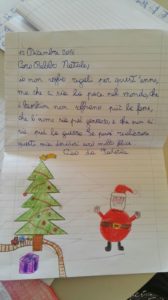 12 Dicembre 2016
Caro Babbo Natale,
io non voglio regali per quest'anno,
ma che ci sia la pace nel mondo, che
i bambini non soffrano più la fame,
che l'uomo sia più generoso e che non ci
sia più la guerra. Se puoi realizzare
questi miei desideri sarò molto felice.
Ciao da